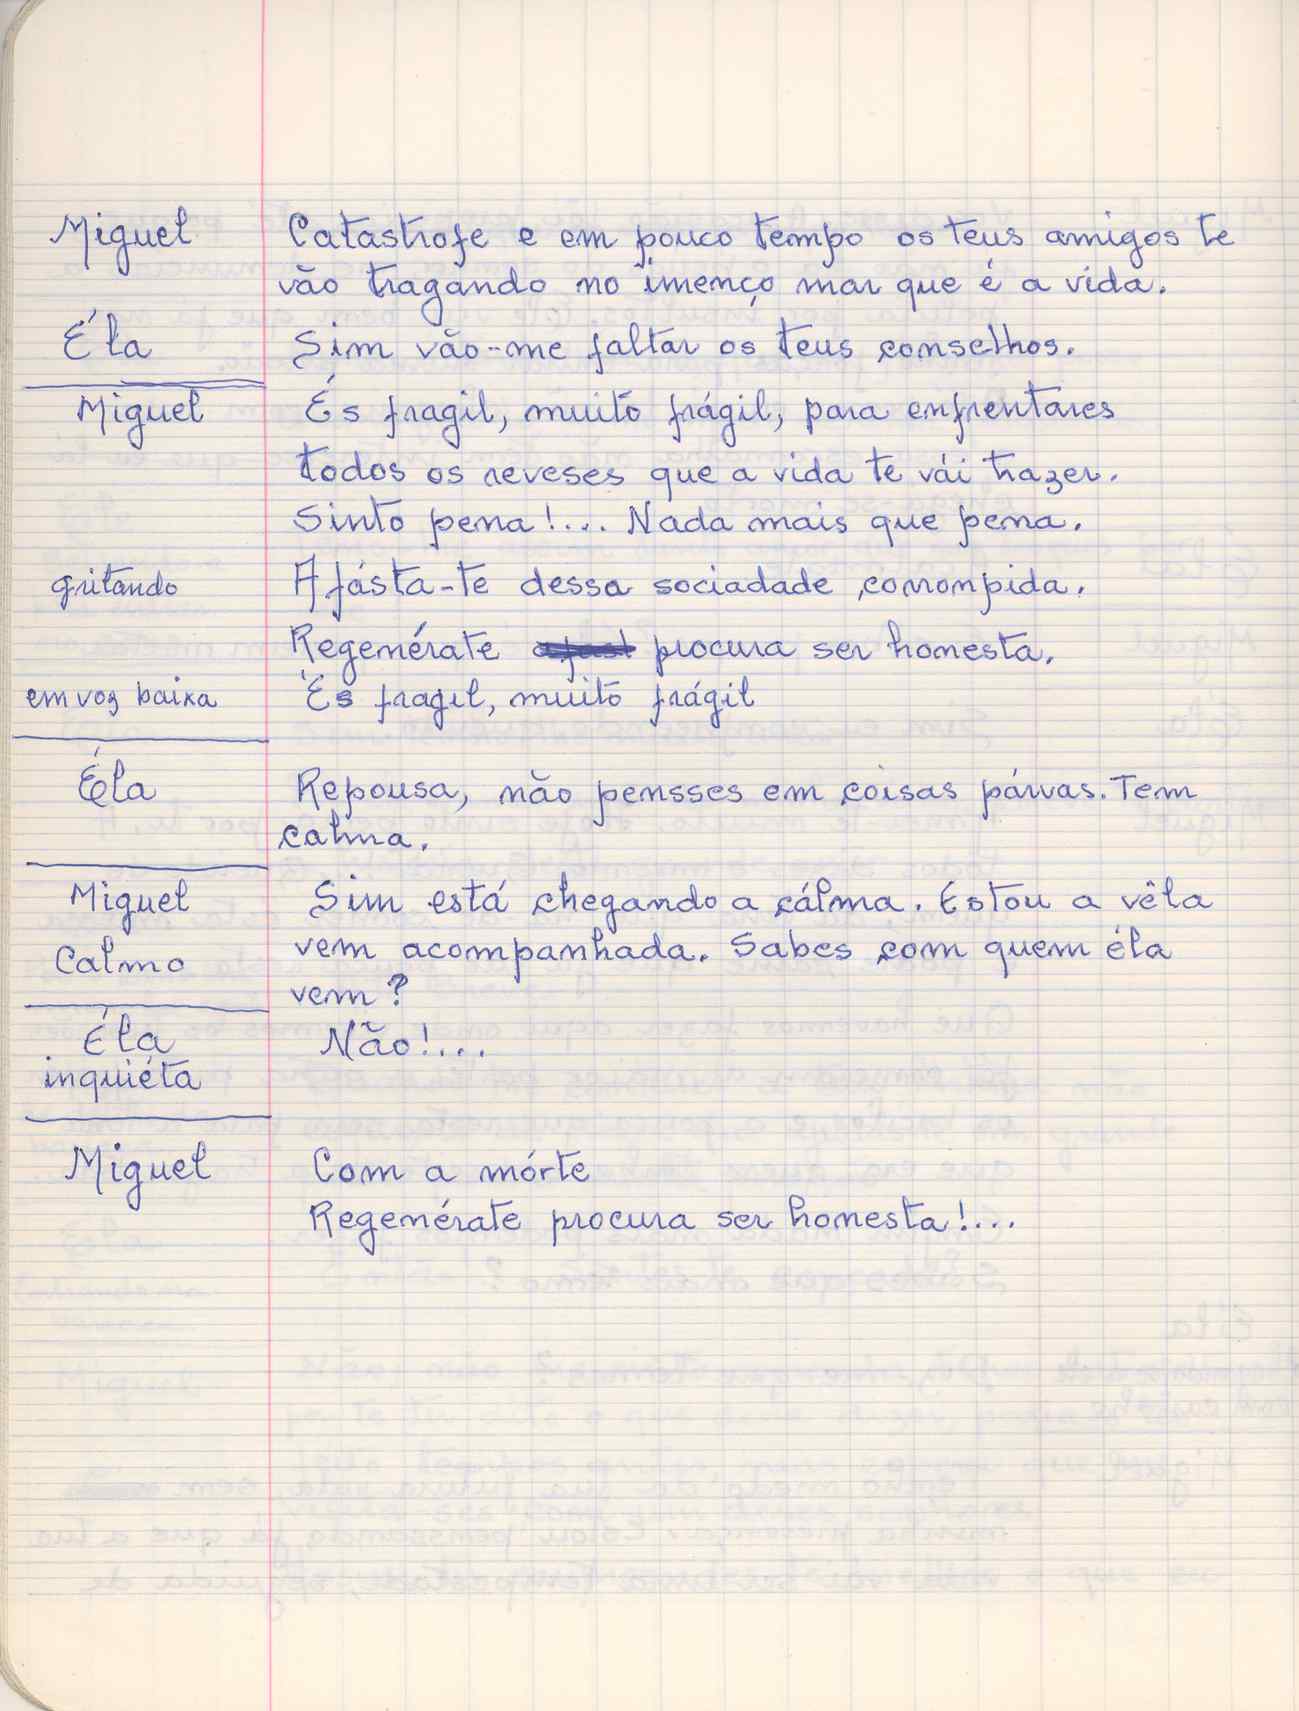 Miguel Catastrofe e em pouco tempo os teus amigos te
vão tragando no imenço mar que é a vida.
Éla Sim vão-me faltar os teus conselhos.
Miguel És fragil, muito frágil, para enfrentares
todos os reveses que a vida te vái trazer.
Sinto pena!... Nada mais que pena.
gritando Afásta-te dessa sociadade corrompida.
Regenérate procura ser honesta.
em voz baixa És fragil, muito frágil
Éla Repousa, não pensses em coisas párvas. Tem
calma.
Miguel Sim está chegando a cálma. Estou a vêla
Calmo vem acompanhada. Sabes com quem éla
vem?
Éla Não!...
inquiéta
Miguel Com a mórte
Regenérate procura ser honesta!...